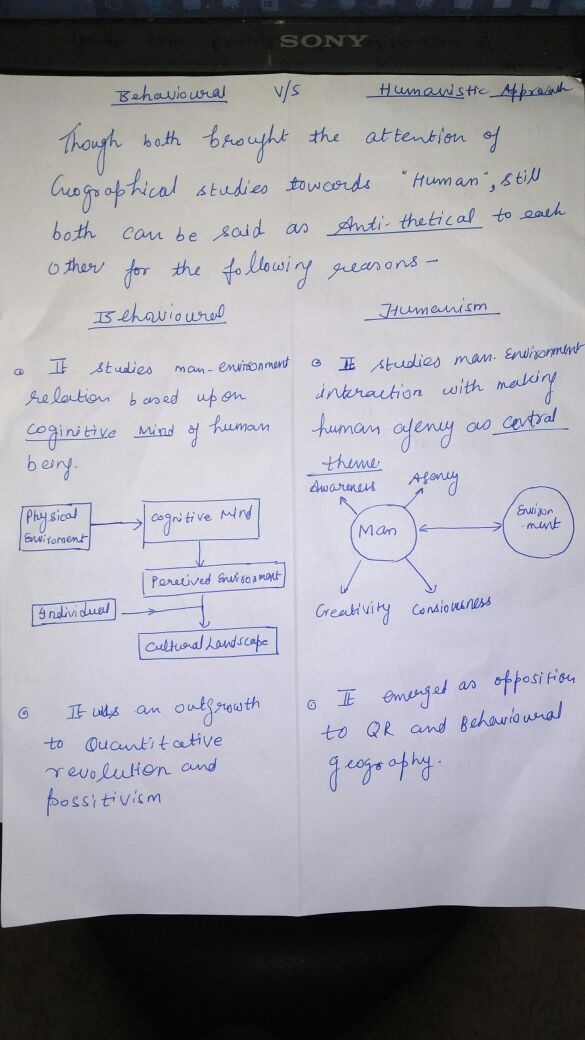 SONY
Behavioural V/S Humanistic Approach
Though both brought the attention of
Geographical studies towards "Human", still
both can be said as Anti-thetical to each
other for the following reasons -
Behavioural
It studies man-environment
relation based upon
coginitive Mind of human
being.
Physical
Enviroment
Cognitive Mind
Perceived Environment
Individual
Cultural Landscape
It was an outgrowth
to Quantitative
revolution and
possitivism
Humanism
It studies man-Environment
interaction with making
human agency as central
theme.
Awareness
Agency
Man
Environ
-ment
Creativity
Consiousness
It emerged as opposition
to QR and Behavioural
geography.